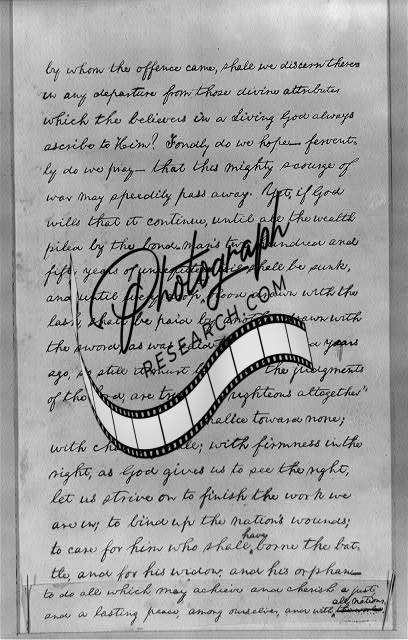 by whom the offence came, shall we discern there=
in any departure from those divine attributes
which the believers in a Living God always
ascribe to Him? Fondly do we hope— fervent-
ly do we pray— that this mighty scourge of
war may speedily pass away. Yet, if God
wills that it continue, until all the wealth
piled by the bond-man's two hundred and
fifty years of shall be sunk,
and until drawn with the
lash, shall be paid by drawn with
the sword, as was said years
ago, so still it must the judgments
of the Lord, are righteous altogether"
malice toward none;
with all; with firmness in the
right, as God gives us to see the right,
let us strive on to finish the work we
are in; to bind up the nation's wounds;
to care for him who shall have borne the bat-
tle, and for his widow, and his orphan—
to do all which may achieve and cherish a just,
and a lasting peace, among ourselves, and with all nations.
Photograph
RESEARCH.COM